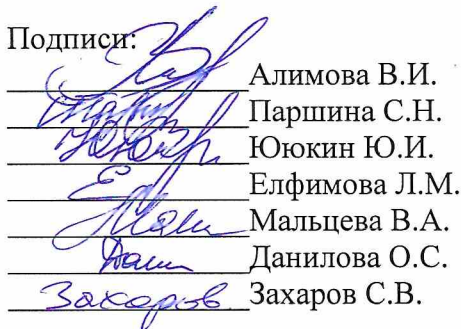 Подписи:
Алимова В.И.
Паршина С.Н.
Ююкин Ю.И.
Елфимова Л.М.
Мальцева В.А.
Данилова О.С.
Захаров Захаров С.В.